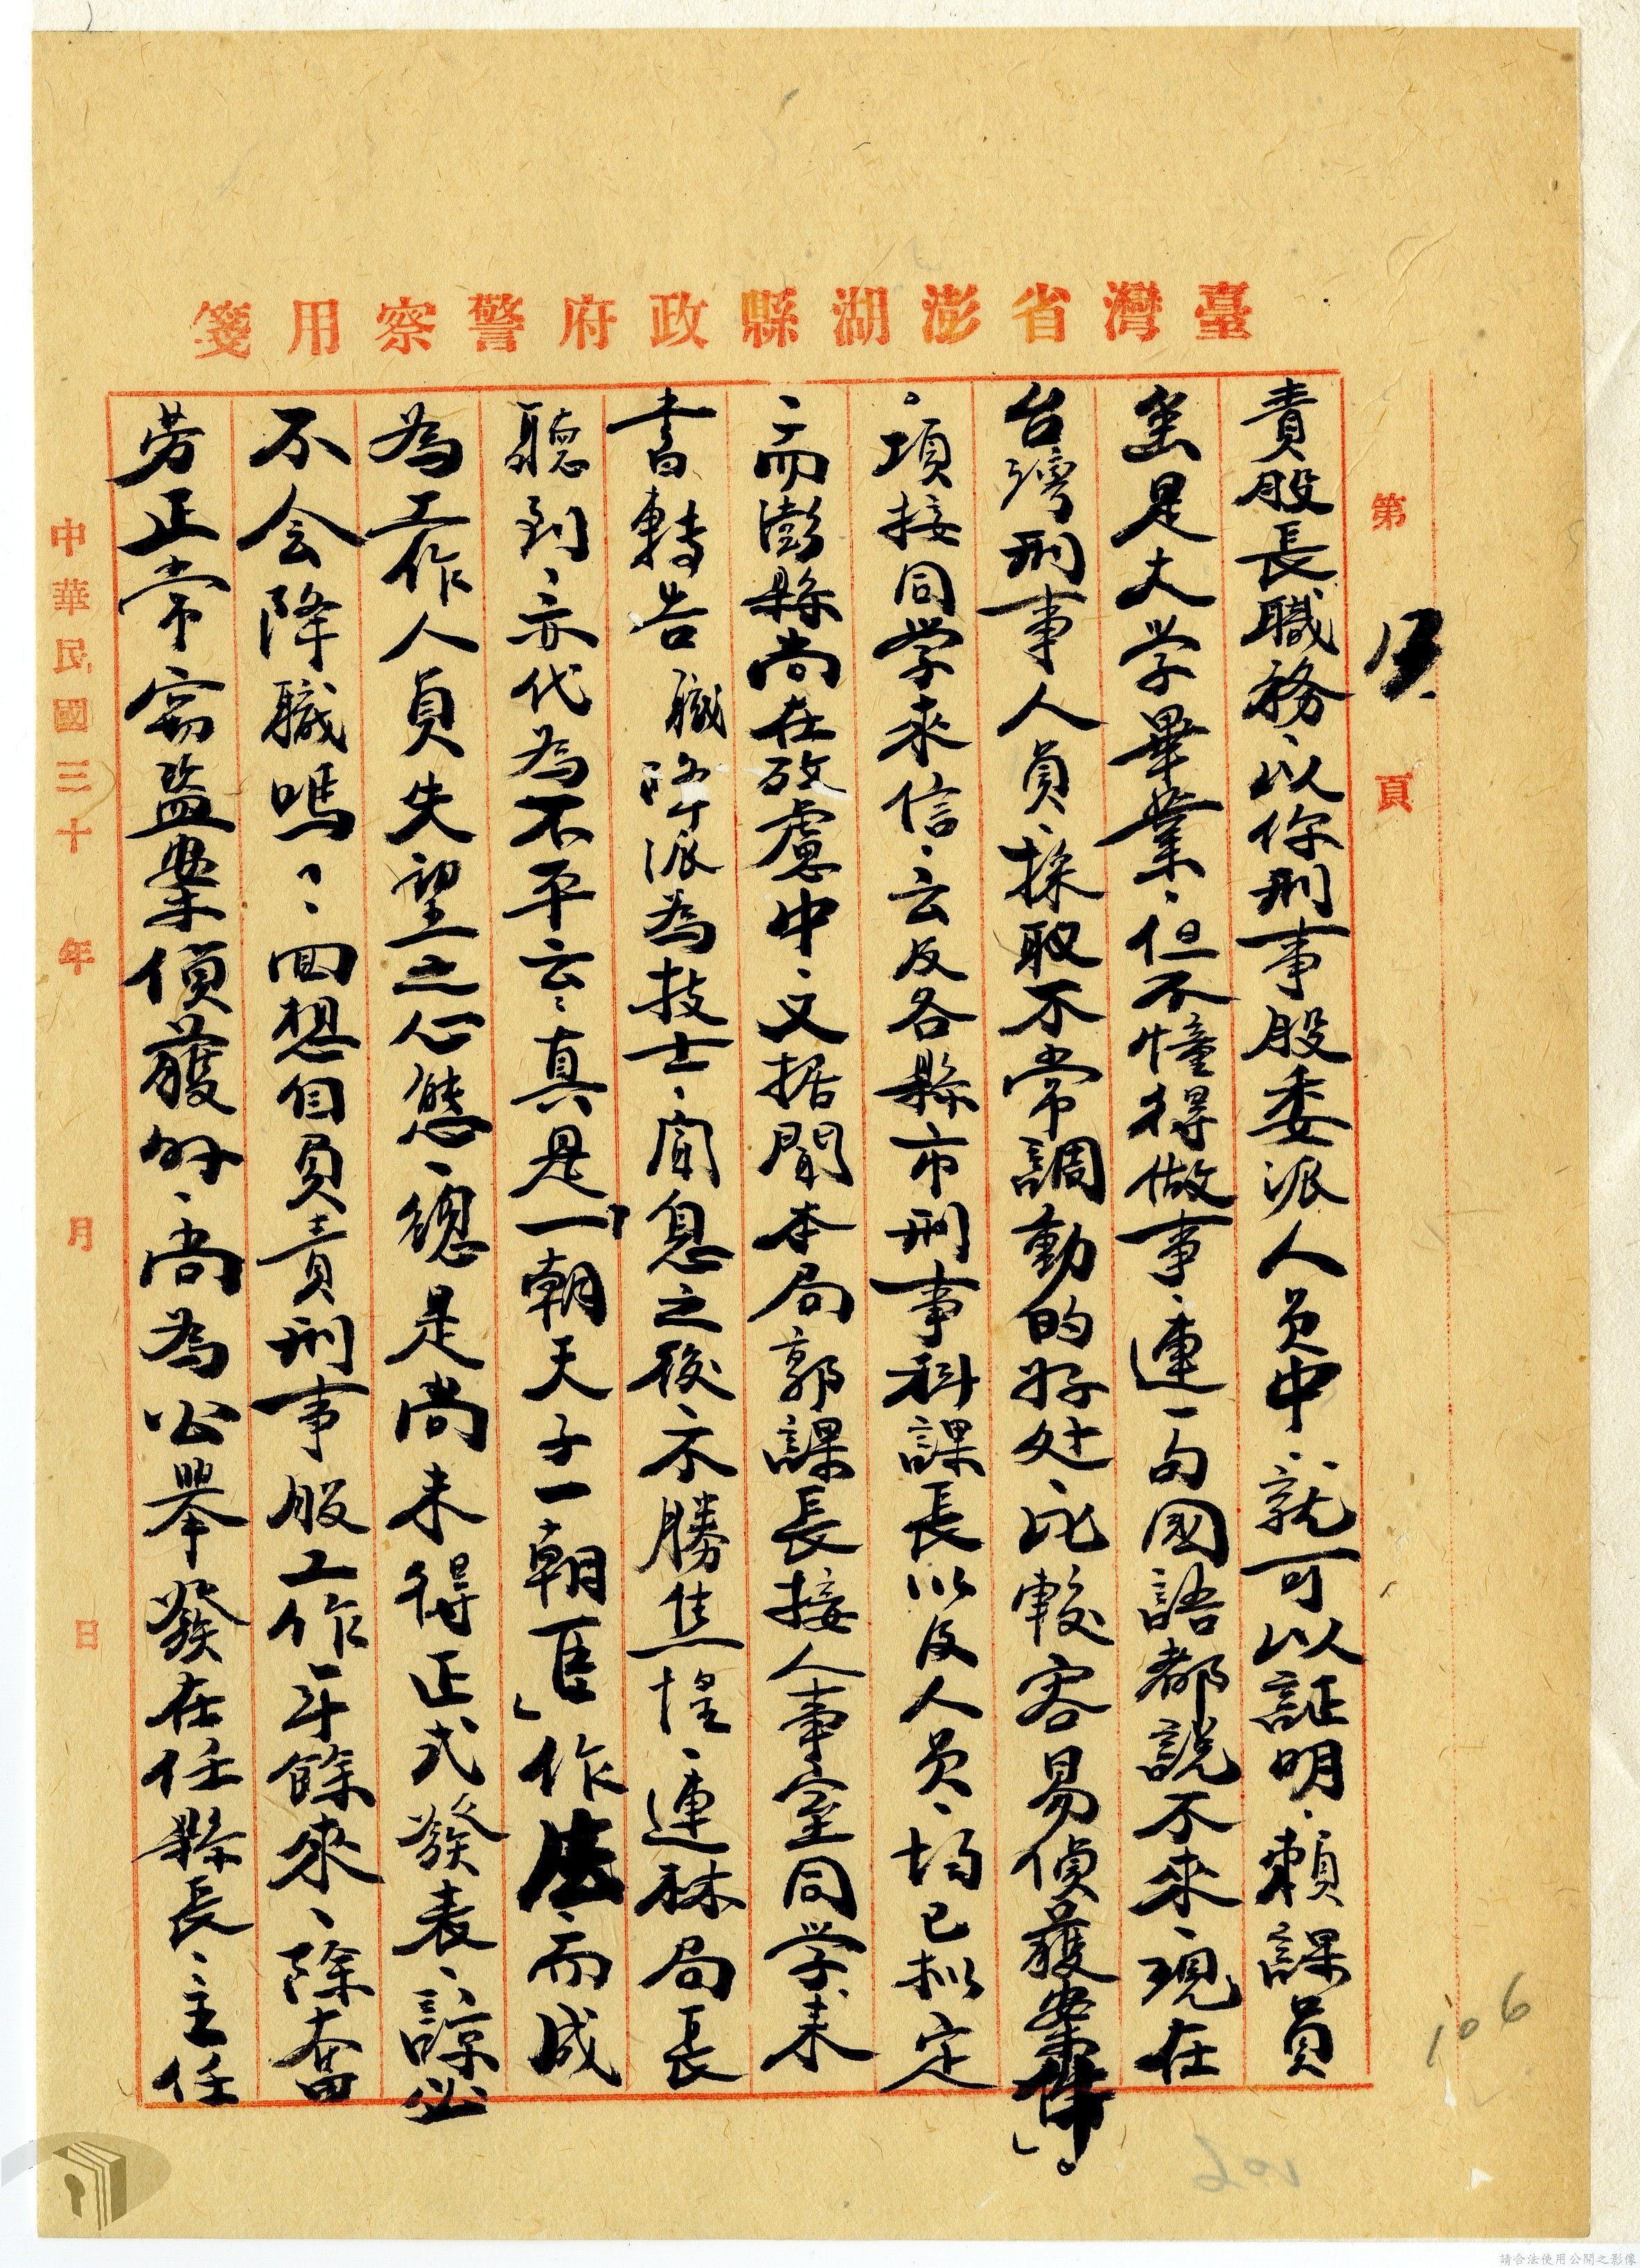 臺灣省澎湖縣政府警察用箋
第 頁
責股長職務、以你刑事股委派人員中、就可以証明、賴課員
虽是大学畢業、但不憧得做事、連一句國語都說不來、現在
台灣刑事人員、採取不常調動的好处、比較容易偵獲案件」。
。項接同学來信、云及各縣市刑事科課長以及人員、均已拟定
、而澎縣尚在攷慮中、又据聞本局郭課長接人事室同学來
書轉告職降派為技士、聞息之後、不勝焦惶、連林局長
聽到、亦代為不平云、真是「一朝天子一朝臣」作法、而成
為工作人員失望之心態、總是尚未得正式發表、諒必
不会降職嗎、、回想自負責刑事股工作年餘來、除奮
劳正常窃盜案偵獲外、尚為公舉發在任縣長、主任
中華民國三十 年 月 日
106
請合法使用公開之影像